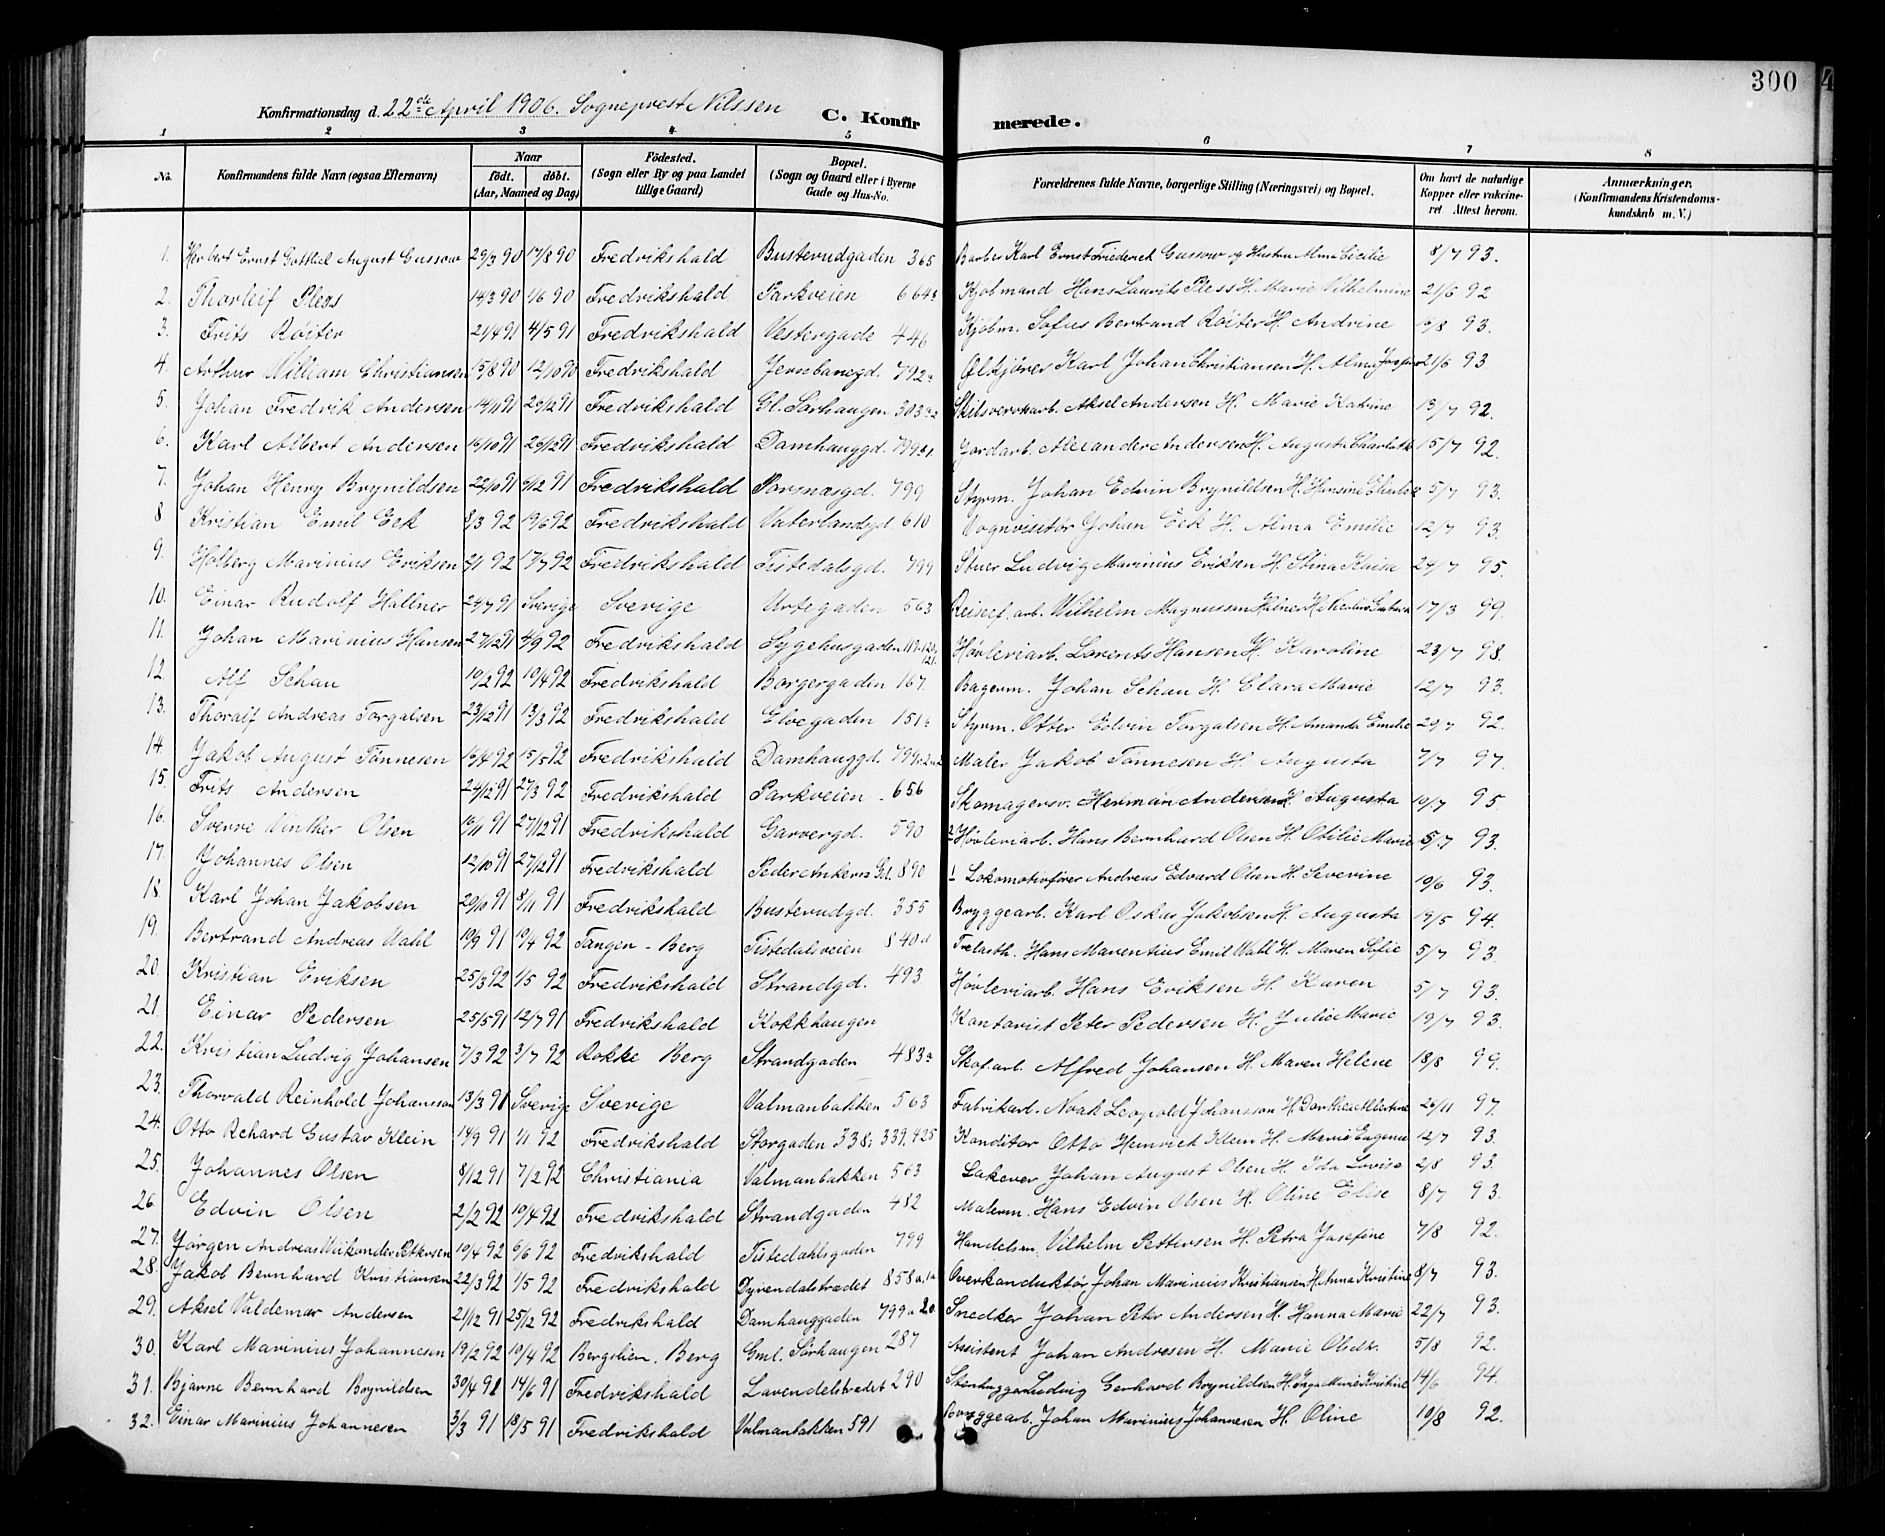 300
Konfirmationsdag d. 22de April 1906. Sogneprest Nilssen
C. Konfirmerede.
1 2 3 4 5 6 7 8
No. Konfirmandens fulde Navn (ogsaa Efternavn) Naar født. døbt. (Aar, Maaned og Dag) Födested. (Sogn eller By og paa Landet tillige Gaard) Bopæl. (Sogn og Gaard eller i Byerne Gade og Hus-No. Forældrenes fulde Navne, borgerlige Stilling (Næringsvei) og Bopæl. Om havt de naturlige Kopper eller vakcineret Attest herom. Anmærkninger. (Konfirmandens Kristendomskundskab m. V.)
1. Herbert Ernst Gotthil August Gussow 29/3 90 17/8 90 Fredrikshald Busterudgaden 365 Barber Karl Ernst Friederik Gussow og Hustru Alma Cicilie 8/7 93.
2. Thorleif Pless 14/3 90 1/6 90 Fredrikshald Parkveien 664a Kjøbmand Hans Laurits Pless H. Marie Vilhelmine 21/6 92
3. Frits Røiter 21/4 91 4/5 91 Fredrikshald Vestergade 446 Kjøbm. Sofus Bertrand Røiter H. Andrine 10/8 93.
4. Arthur William Christiansen 15/8 90 12/10 90 Fredrikshald Jernbanegd. 792a Ølkjører Karl Johan Christiansen H. Alma Josefine 21/6 93.
5. Johan Fredrik Andersen 14/11 91 26/12 91 Fredrikshald Gl. Sørhaugen 303a2 Skilsverksarb. Aksel Andersen H. Marie Katrine 13/7 92.
6. Karl Albert Andersen 16/10 91 26/12 91 Fredrikshald Damhauggd. 799a1. Jordarb. Alexander Andersen H. Augusta Charlotte 15/7 92.
7. Johan Henry Brynildsen 22/10 91 6/12 91 Fredrikshald Porsnæsgd. 799 Styrm. Johan Edvin Brynildsen H. Hansine 5/7 93.
8 Kristian Emil Eek 8/3 92 19/6 92 Fredrikshald Vaterlandsgd. 610 Vognvisitør Johan Eek H. Alma Emilie 12/7 93.
9. Holberg Marinius Eriksen 2/1 92 17/7 92 Fredrikshald Tistedalsgd. 799 Stuer Ludvig Marinius Eriksen H. Stina Kaisa 24/7 95.
10. Einar Rudolf Hallner 24/7 91 Sverige Sverige Urtegaden 563 Wilhelm Magnussen 17/3 99.
11. Johan Marinius Hansen 27/12 91 4/9 92 Fredrikshald Sygehusgaden 119-120, 121. Høvleriarb. Lorents Hansen H. Karoline 23/7 98.
12. Alf Schau 10/2 92 10/4 92 Fredrikshald Borgergaden 167. Bagerm. Johan Schau H. Clara Marie 12/7 93.
13. Thoralf Andreas Torgalsen 23/12 91 13/3 92 Fredrikshald Elvegaden 151a Styrm. Otter Edvin Torgalsen H. Amanda Emilie 29/7 92.
14. Jakob August Tønnesen 16/4 92 15/5 92 Fredrikshald Damhauggd. 799 Maler Jakob Tønnesen H. Augusta 7/7 97.
15. Frits Andersen 24/12 91 27/3 92 Fredrikshald Parkveien - 656 Skomagersv. Herman Andersen H. Augusta 10/7 95
16. Sverre Winther Olsen 16/11 91 27/12 91 Fredrikshald Garvergd. 590 2 Høvleriarb. Hans Bernhard Olsen H. Otilie Marie 5/7 93.
17. Johannes Olsen 12/10 91 27/12 91 Fredrikshald Peder Ankers Gd. 890 1 Lokomotivfører Andreas Edvard Olsen H. Severine 10/6 93.
18. Karl Johan Jakobsen 20/10 91 8/11 91 Fredrikshald Busterudgd. 355 Bryggearb. Karl Oskar Jakobsen H. Augusta 19/5 94.
19. Bertrand Andreas Wahl 10/9 91 10/4 92 Tangen - Berg Tistedalsveien 840 Trelasth. Hans Marentius Emil Wahl H. Maren Sofie 5/7 93.
20. Kristian Eriksen 25/3 92 1/5 92 Fredrikshald Strandgd. 493 Høvleriarb. Hans Eriksen H. Karen 5/7 93.
21. Einar Pedersen 25/5 91 12/7 91 Fredrikshald Kokkhaugen Kontorist Peter Pedersen H. Julie Marie 19/7 93.
22. Kristian Ludvig Johansen 7/3 92 3/7 92 Rokke Berg Strandgaden 483a Skof.arb. Alfred Johansen H. Maren Helene 18/8 99.
23. Thorvald Reinhold Johansson 13/3 91 Sverige Sverige Valmanbakken 563 Fabrikarb. Noak Leopold Johansson H. Dorthea Albertine 26/11 97.
24. Otto Rehard Gustav Klein 14/9 91 1/1 92 Fredrikshald Storgaden 338, 339, 425 Konditor Otto Heinrich Klein H. Marie Eugenie 12/7 93.
25. Johannes Olsen 8/12 91 7/2 92 Christiania Valmanbakken 563 Lakerer Johan August Olsen H. Ida Lovise 2/8 93.
26. Edvin Olsen 2/2 92 10/4 92 Fredrikshald Strandgaden 482 Malerm. Hans Edvin Olsen H. Oline Elise 8/7 93.
27. Jørgen Andreas Pettersen 10/4 92 6/6 92 Fredrikshald Tistedahlsgaden 799 Handelsm. Vilhelm Pettersen H. Petra Josefine 7/8 92.
28. Jakob Bernhard Kristiansen 22/3 92 1/5 92 Fredrikshald Dyrendalstrædet 858 Overkonduktør Johan Marinius Kristiansen H. Anna Kristine 8/7 93.
29. Aksel Valdemar Andersen 21/12 91 25/12 92 Fredrikshald Damhauggaden 799a 20 Snedker Johan Peter Andersen H. Hanna Marie 22/7 93.
30. Karl Marinius Johannesen 19/2 92 10/4 92 Bergslien. Berg Gml. Sørhaugen 287 Assistent Johan Andresen H. Marie Olsdtr. 5/8 92.
31. Bjarne Bernhard Brynildsen 30/4 91 14/6 91 Fredrikshald Lavendelstrædet 290 Stenhugger Ludvig Gerhard Brynildsen H. Inga Marie Kristine 14/6 94.
32. Einar Marinius Johannesen 3/3 91 18/5 91 Fredrikshald Valmanbakken 591 Bryggearb. Johan Marinius Johannesen H. Oline 10/8 92.